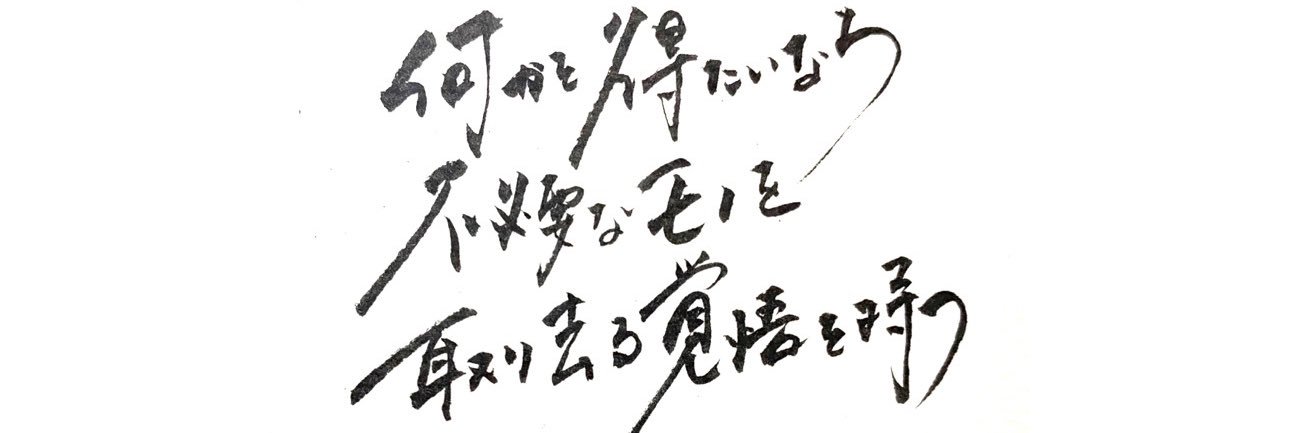 何かを得たいなら
不必要なモノを
取り去る覚悟を持つ